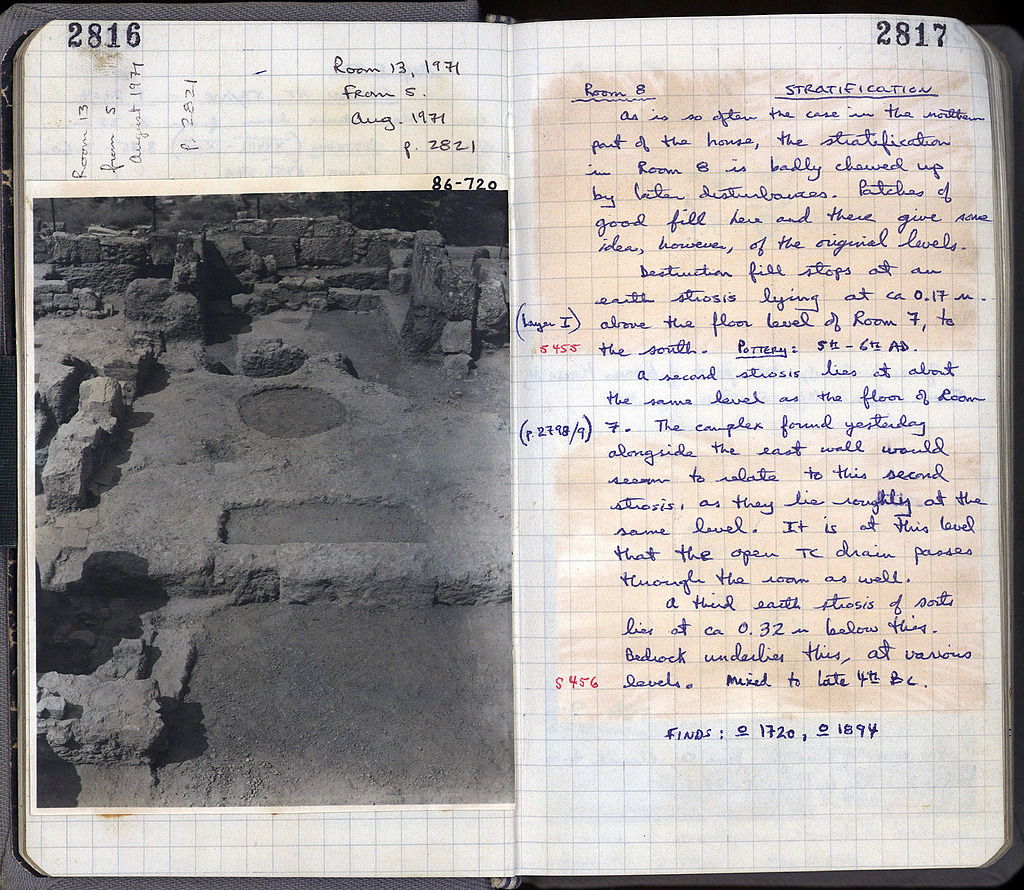 2816
Room 13
from S
August 1971
p 2821
Room 13, 1971
From S.
Aug. 1971
p. 2821
86-720
2817
Room 8 STRATIFICATION
As is so often the case in the northern
part of the house, the stratification
in Room 8 is badly chewed up
by later disturbances. Patches of
good fill here and there give some
idea, however, of the original levels.
Destruction fill stops at an
earth strosis lying at ca 0.17 m.
(Layer I) above the floor level of Room 7, to
S 455 the south. POTTERY: 5th - 6th AD.
A second strosis lies at about
the same level as the floor of Room
(p. 2798/9) 7. The complex found yesterday
alongside the east wall would
seem to relate to this second
strosis, as they lie roughly at the
same level. It is at this level
that the open TC drain passes
through the room as well.
A third earth strosis of sorts
lies at ca 0.32 m below this.
Bedrock underlies this, at various
S 456 levels. Mixed to late 4th BC.
FINDS: o 1720, o 1894